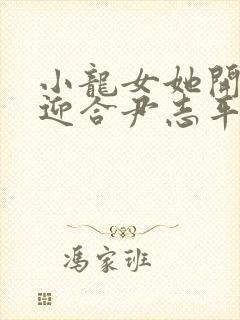 小龍女她開
迎合尹志平
馮家班